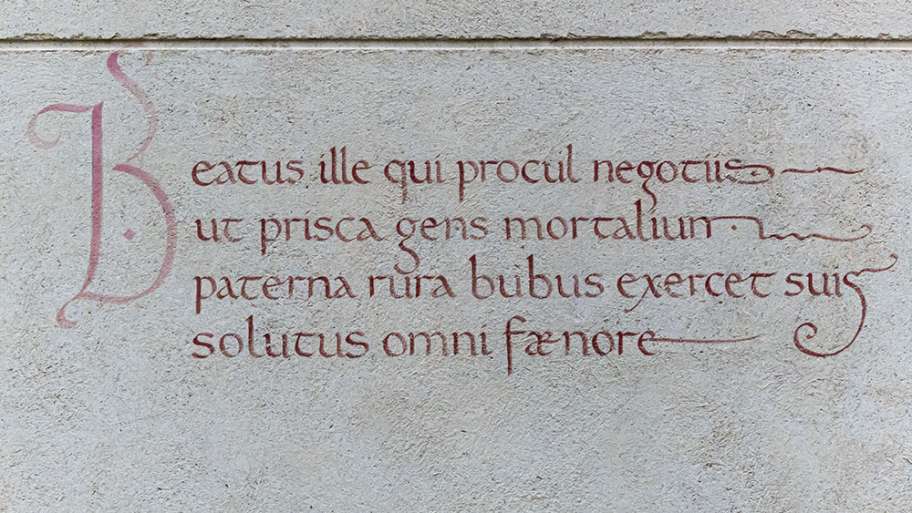 Beatus ille qui procul negotiis
ut prisca gens mortalium
paterna rura bubus exercet suis
solutus omni fænore